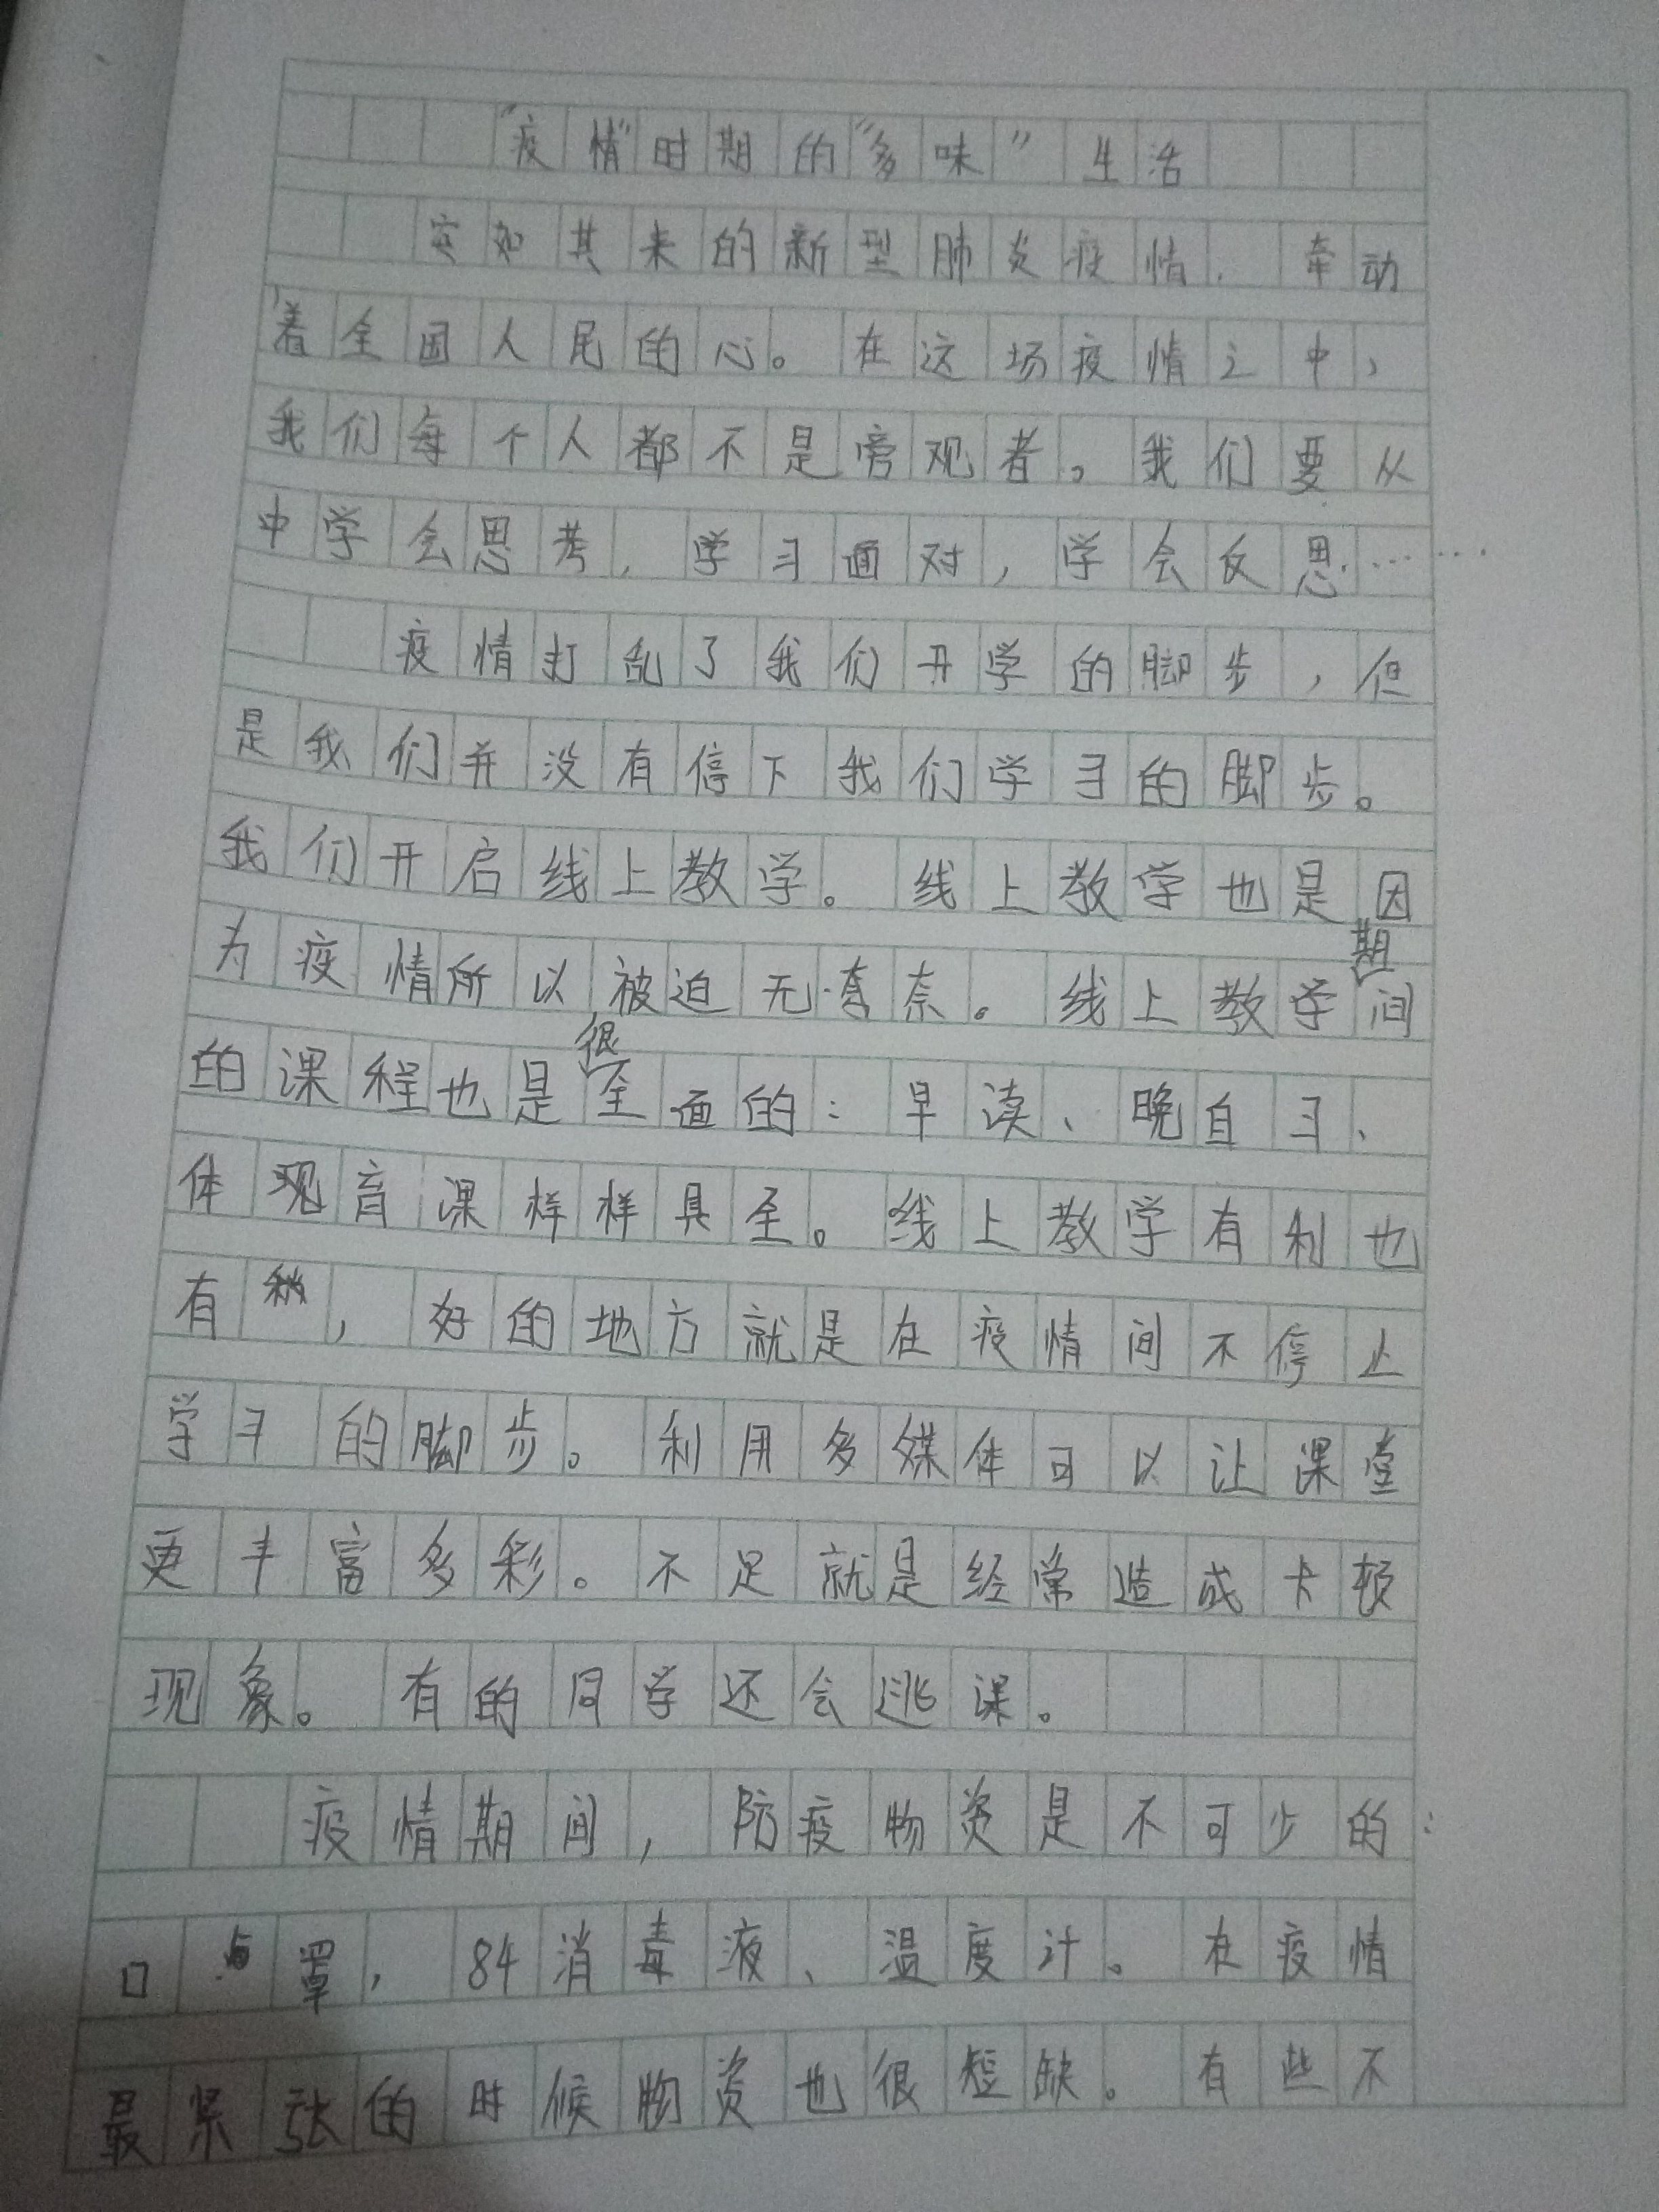 “疫情”时期的“多味”生活
突如其来的新型肺炎疫情，牵动
着全国人民的心。在这场疫情之中，
我们每个人都不是旁观者。我们要从
中学会思考，学习面对，学会反思……
疫情打乱了我们开学的脚步，但
是我们并没有停下我们学习的脚步。
我们开启线上教学。线上教学也是因
为疫情所以被迫无奈。线上教学期间
的课程也是很全面的：早读、晚自习、
体育课样样具全。线上教学有利也
有，好的地方就是在疫情间不停止
学习的脚步。利用多媒体可以让课堂
更丰富多彩。不足就是经常造成卡顿
现象。有的同学还会逃课。
疫情期间，防疫物资是不可少的：
口罩，84消毒液、温度计。在疫情
最紧张的时候物资也很短缺。有些不